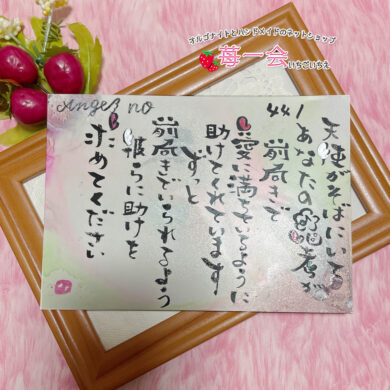 オルゴナイトとハンドメイドのネットショップ
苺一会
いちごいちえ
Angel no 441
天使がそばにいて
あなたの思考が
前向きで
愛に満ちているように
助けてくれています
ずっと
前向きでいられるよう
彼らに助けを
求めてください